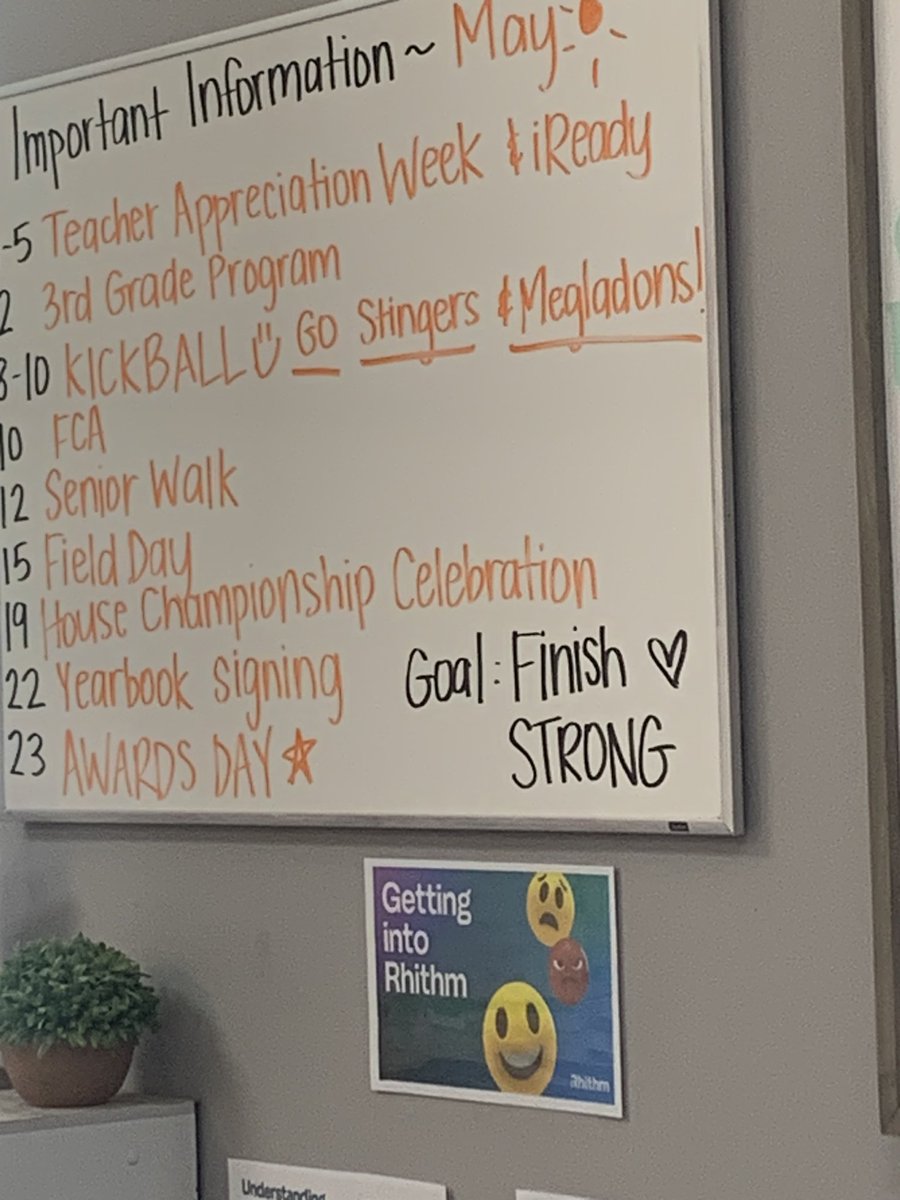 Important Information ~ May
-5 Teacher Appreciation Week & iReady
2 3rd Grade Program
8-10 KICKBALL GO Stingers & Megladons!
10 FCA
12 Senior Walk
15 Field Day
19 House Championship Celebration
22 Yearbook signing
23 AWARDS DAY
Goal: Finish
STRONG
Getting
into
Rhithm
Rhithm
Understanding